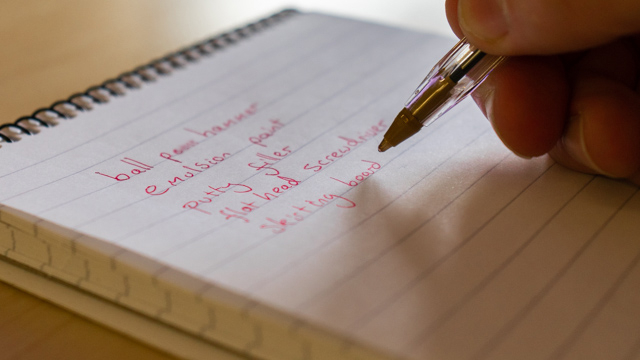 ball pane hammer
emulsion paint
putty filler
flat head screwdriver
skirting board